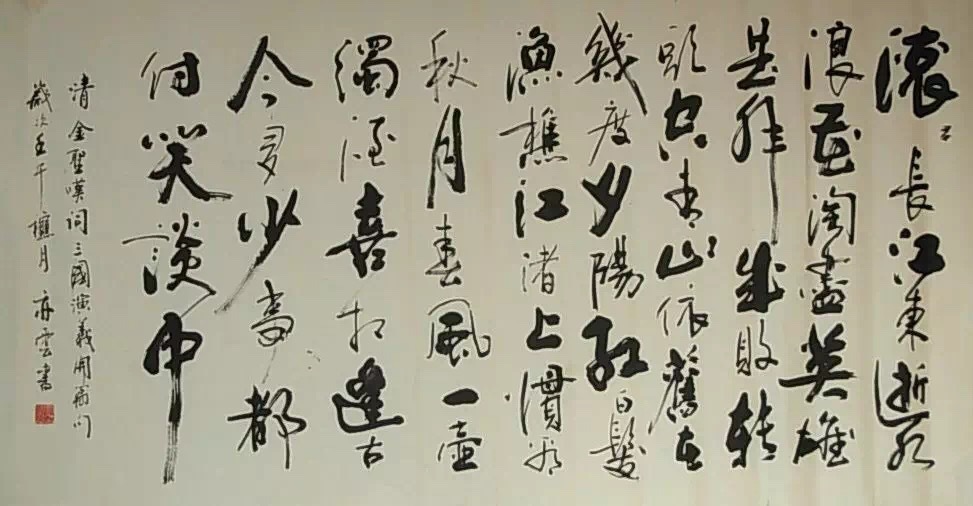 滚〻長江東逝水
浪花淘盡英雄
是非成敗转
頭空青山依舊在
幾度夕陽紅白髮
漁樵江渚上慣看
秋月春風一壺
濁酒喜相逢古
今多少事都
付笑談中
清金聖嘆詞三國演義開篇
歲次壬午月亦雲書